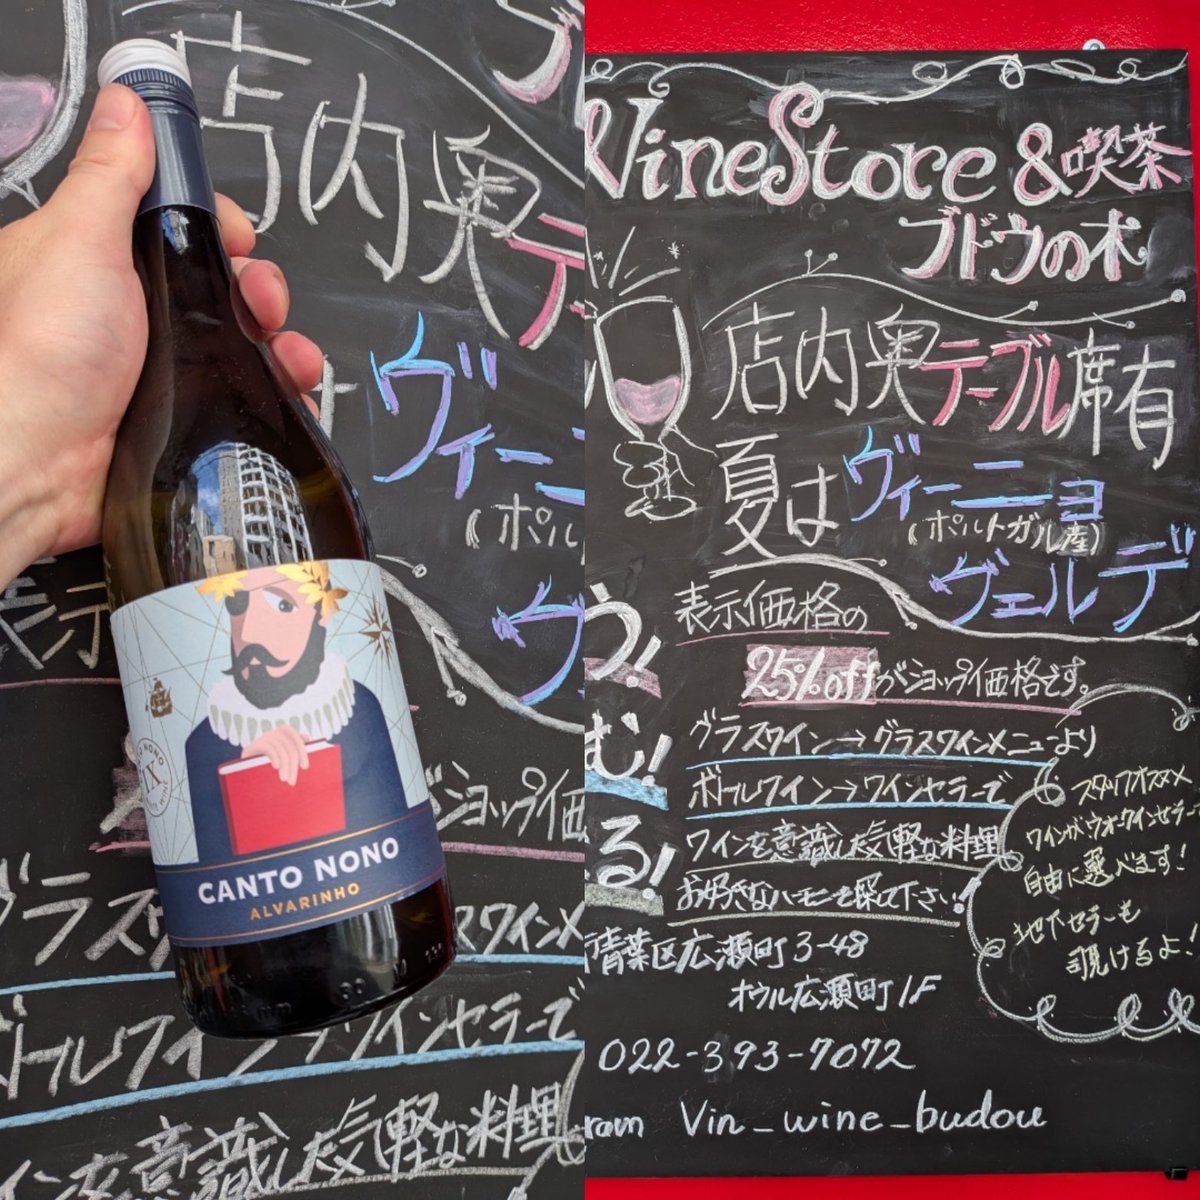 店内奥テ
は ヴィーニ
(ポル
ヴ
表示
ショップ価
グラスワ
ラスワインメ
ボトルワイン
ワインセラーで
インを意識した気軽な料理
CANTO NONO
ALVARINHO
WineStore &喫茶
ブドウの木
店内奥テーブル席有
夏はヴィーニョ
(ポルトガル産)
ヴェルデ
表示価格の
25%offがショップ価格です。
グラスワイン→グラスワインメニューより
ボトルワイン→ワインセラーで
ワインを意識した気軽な料理
お好きなハーモニーを探して下さい!
う!
む!
る!
スタッフオススメ
ワインがウォークインセラー
自由に選べます!
地下セラーも
覗けるよ!
青葉区広瀬町3-48
オウル広瀬町1F
022-393-7072
ram Vin_wine_budou